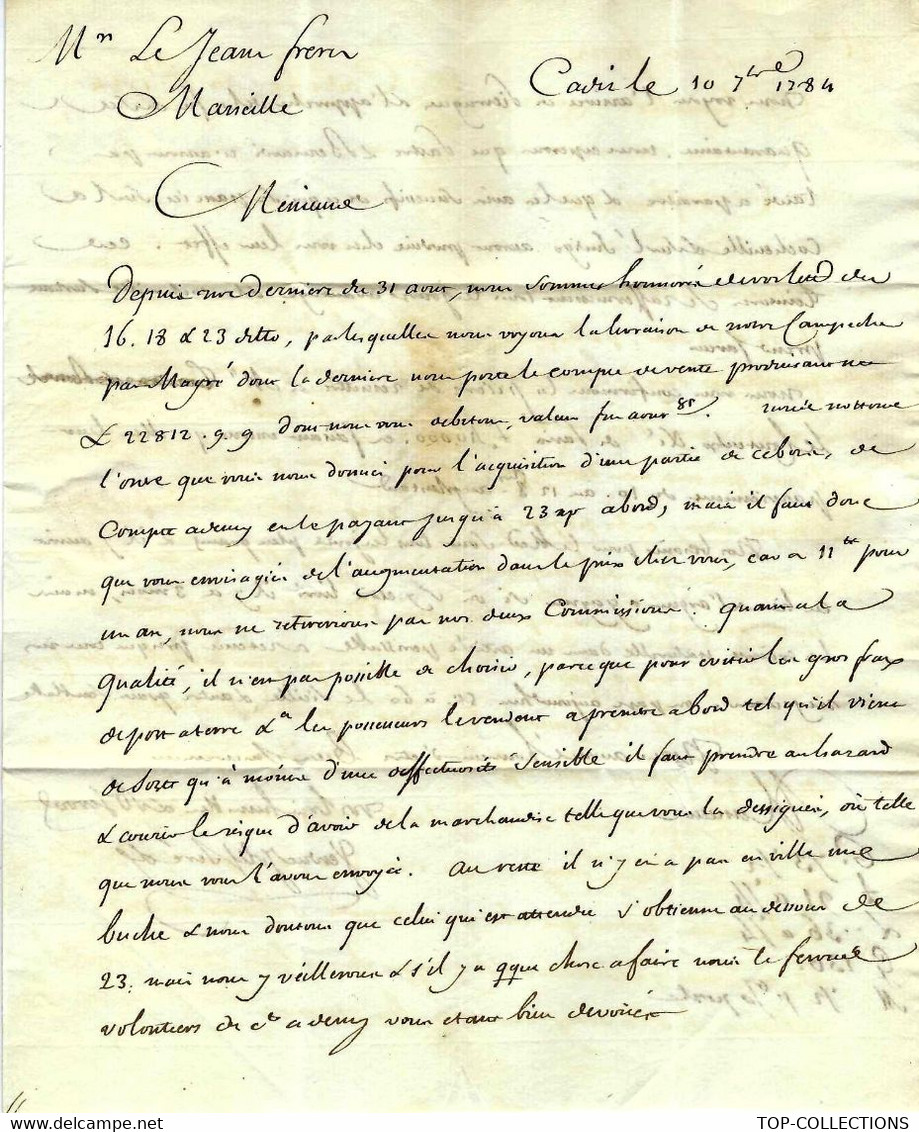 Mrs Le Jeans freres
Marseille
Cadix le 10 7bre 1784
Messieurs
Depuis notre derniere du 31 aout, nous sommes honnorés de vos lettres du
16. 18 & 23 ditto, par lesquelles nous voyons la livraison de notre Campeche
par Magré dont la derniere nous porte le compte de vente produisant net
£ 22812. 9. 9 dont nous vous debitons, valeur fin aoust 85.
l'ordre que vous nous donnés pour l'acquisition d'une partie de ce bois, de
Compte a demy en le payant jusqu'à 23 a bord, mais il faut donc
que vous envisagiés de l'augmentation dans le prix chés vous, car a 11 pour
un an, nous ne retirerions pas nos deux Commissions. quant a la
qualité, il n'est pas possible de choisir, parce que pour eviter les gros fraix
de port a terre &a les possesseurs le vendent a prendre a bord tel qu'il vient
de sorte qu'à moins d'une deffectuosité sensible il faut prendre au hazard
& courir le risque d'avoir de la marchandise telle que vous la dessignés, où telle
que nous vous l'avons envoyée. Au reste il n'y en a pas en ville une
buche & nous doutons que celui qui est attendu s'obtienne au dessous de
23. mais nous y veillerons & s'il y a qque chose a faire nous le ferons
volontiers de Cte a demy vous etans bien devoüés
TOP-COLLECTIONS